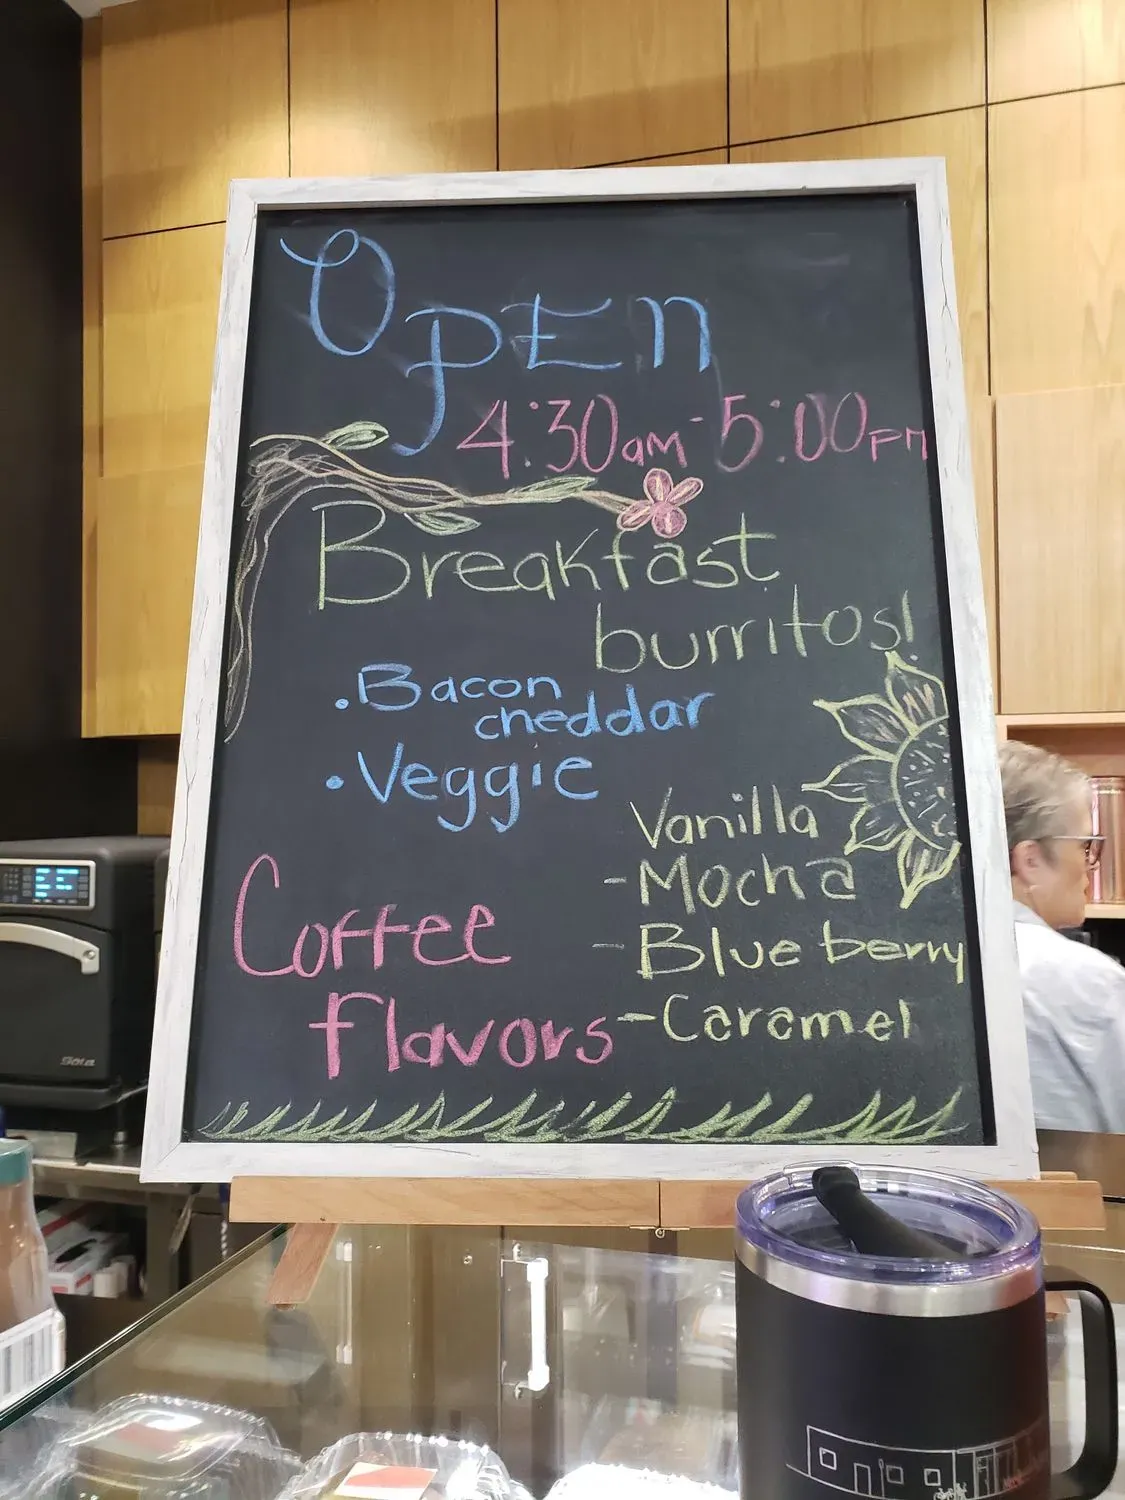 OPEN
4:30am-5:00pm
Breakfast
burritos!
• Bacon
cheddar
• Veggie
Vanilla
- Mocha
- Blue berry
- Caramel
Coffee
Flavors